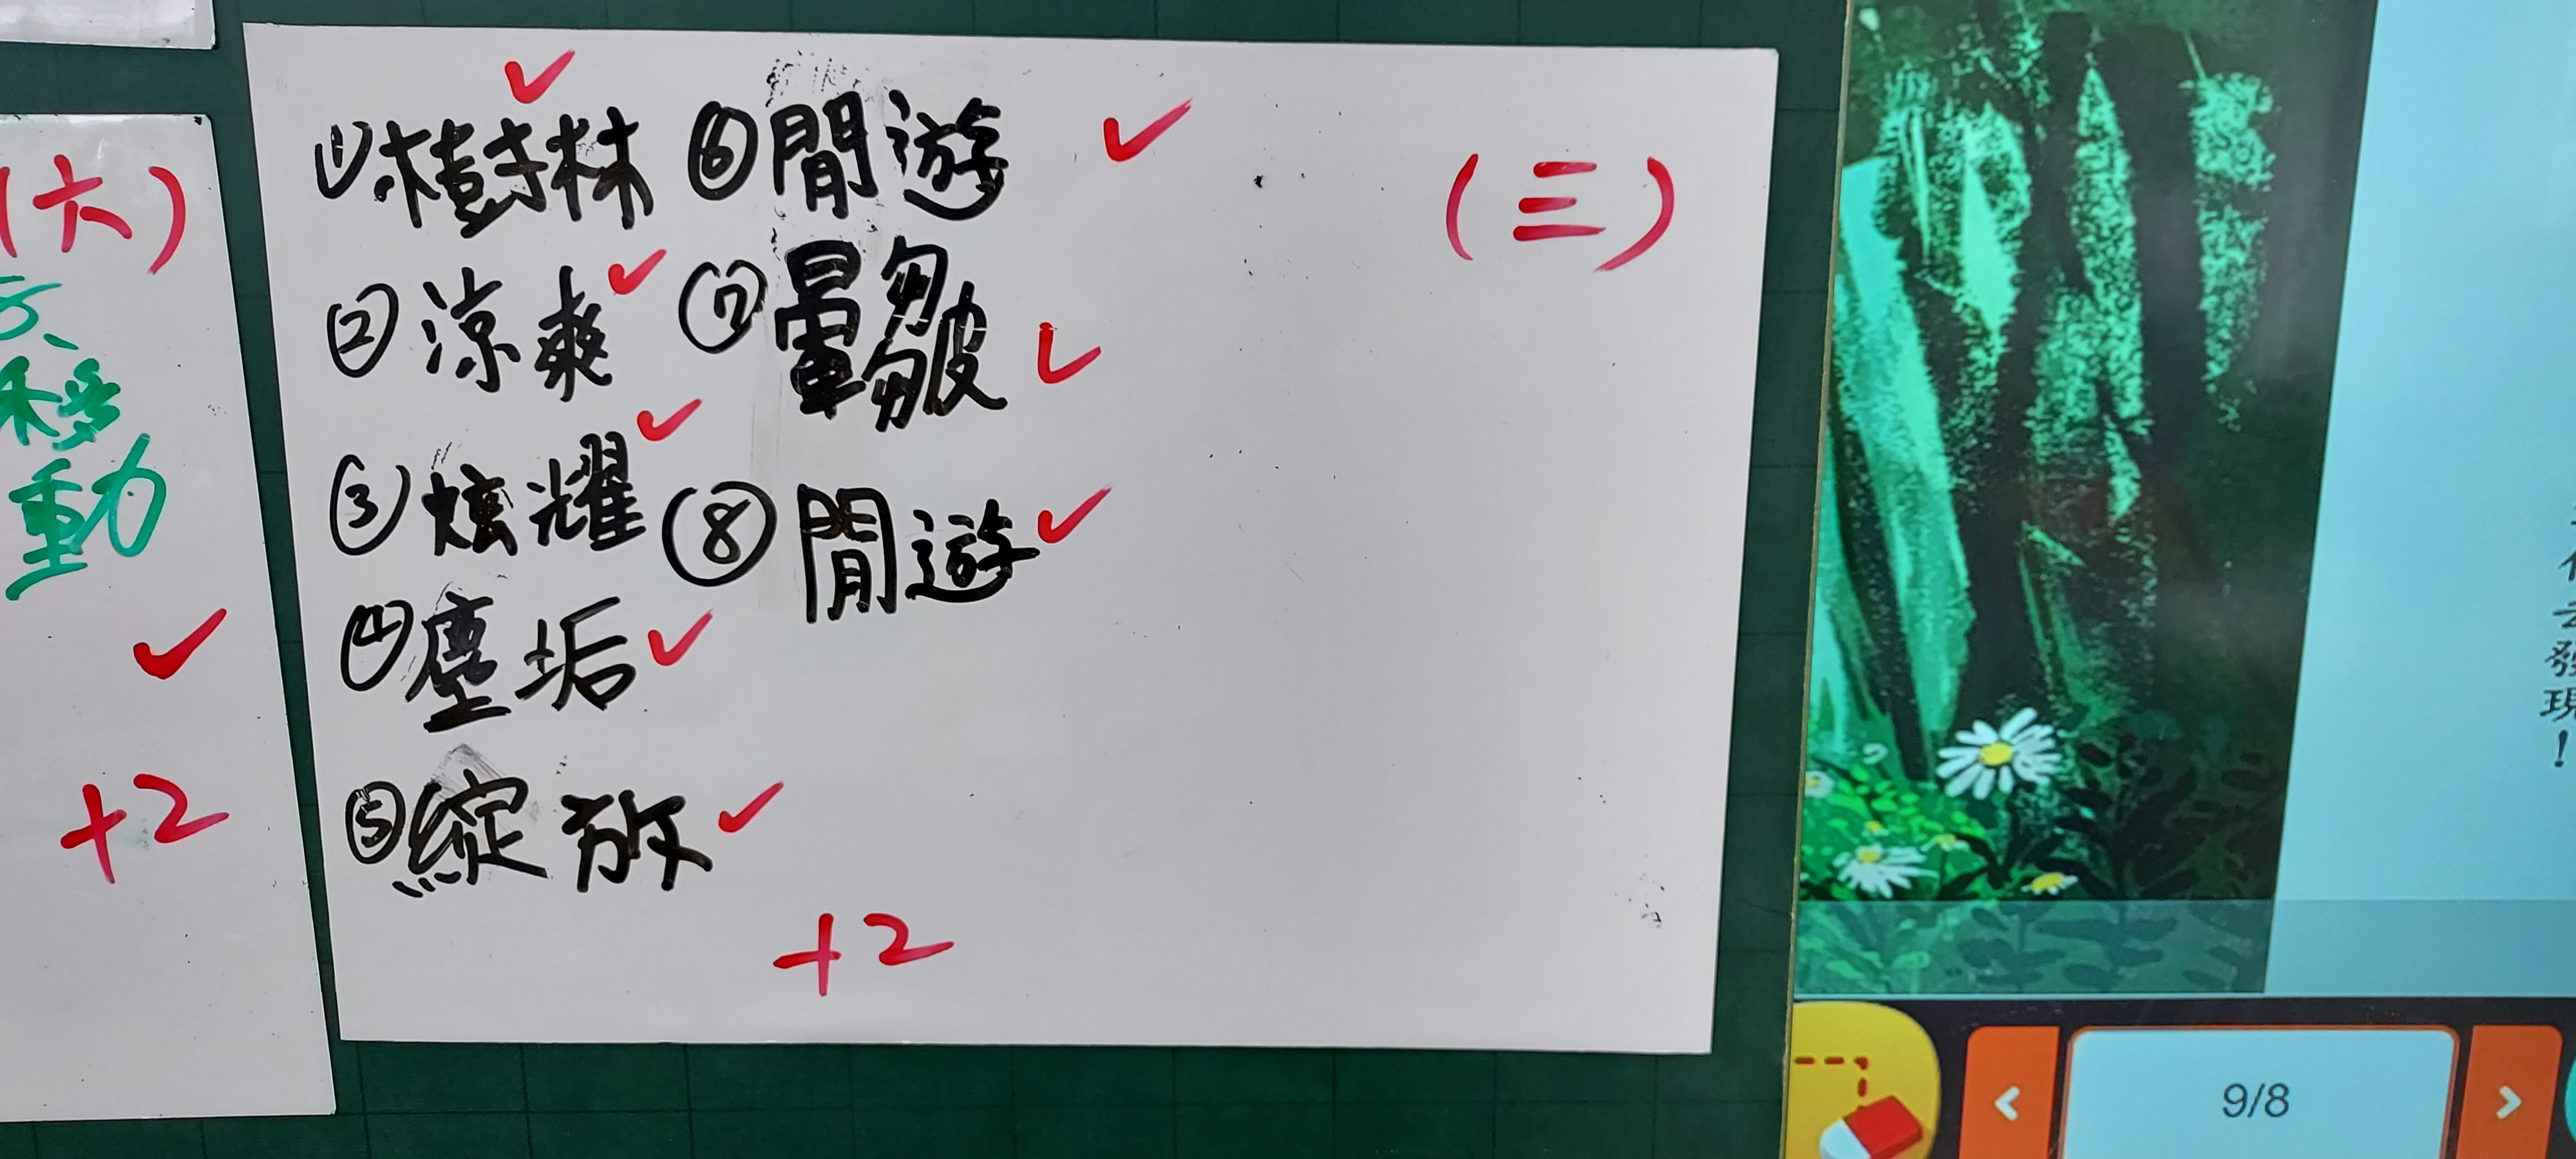 (六)
移
動
✓
+2
(三)
①樹林 ✓
②涼爽 ✓
③炫耀 ✓
④塵垢 ✓
⑤綻放 ✓
⑥閒遊 ✓
⑦皺 ✓
⑧閒遊 ✓
+2
發現!
9/8